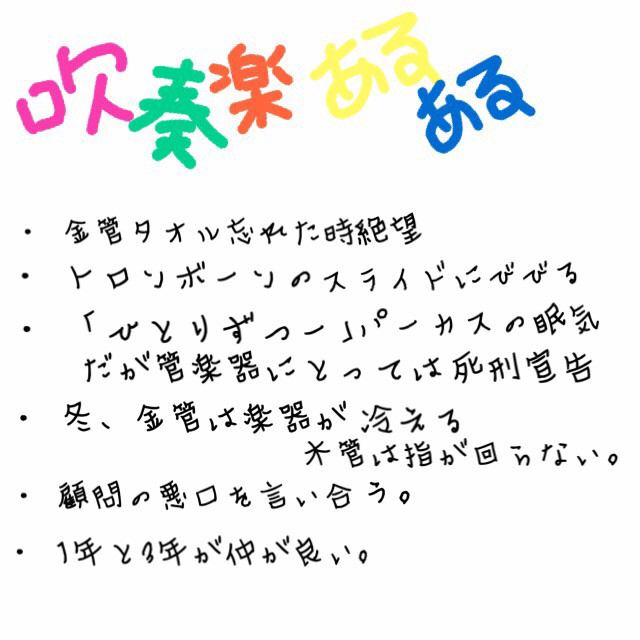 吹奏楽あるある
・金管タオル忘れた時絶望
・トロンボーンのスライドにびびる
・「ひとりずつー」パーカスの眠気
だが管楽器にとっては死刑宣告
・冬、金管は楽器が冷える
木管は指が回らない。
・顧問の悪口を言い合う。
・1年と3年が仲が良い。